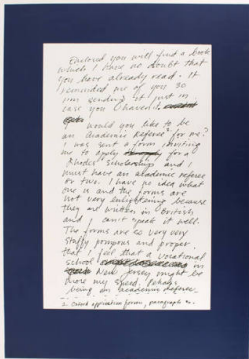 Enclosed you will find a book
which I have no doubt that
you have already read. It
reminded me of you so
I'm sending it just in
case you haven't.
would you like to be
an academic referee for me?
I was sent a form inviting
me to apply for a
Rhodes Scholarship and I
must have an academic referee
or two. I have no idea what
one is and the forms are
not very enlightening because
they are written in British
and I can't speak it well.
The forms are so very very
stuffy pompous and proper
that I feel that a vocational
school in
New Jersey might be
more my speed. Perhaps
being an academic referee
2. Overt application form, paragraph